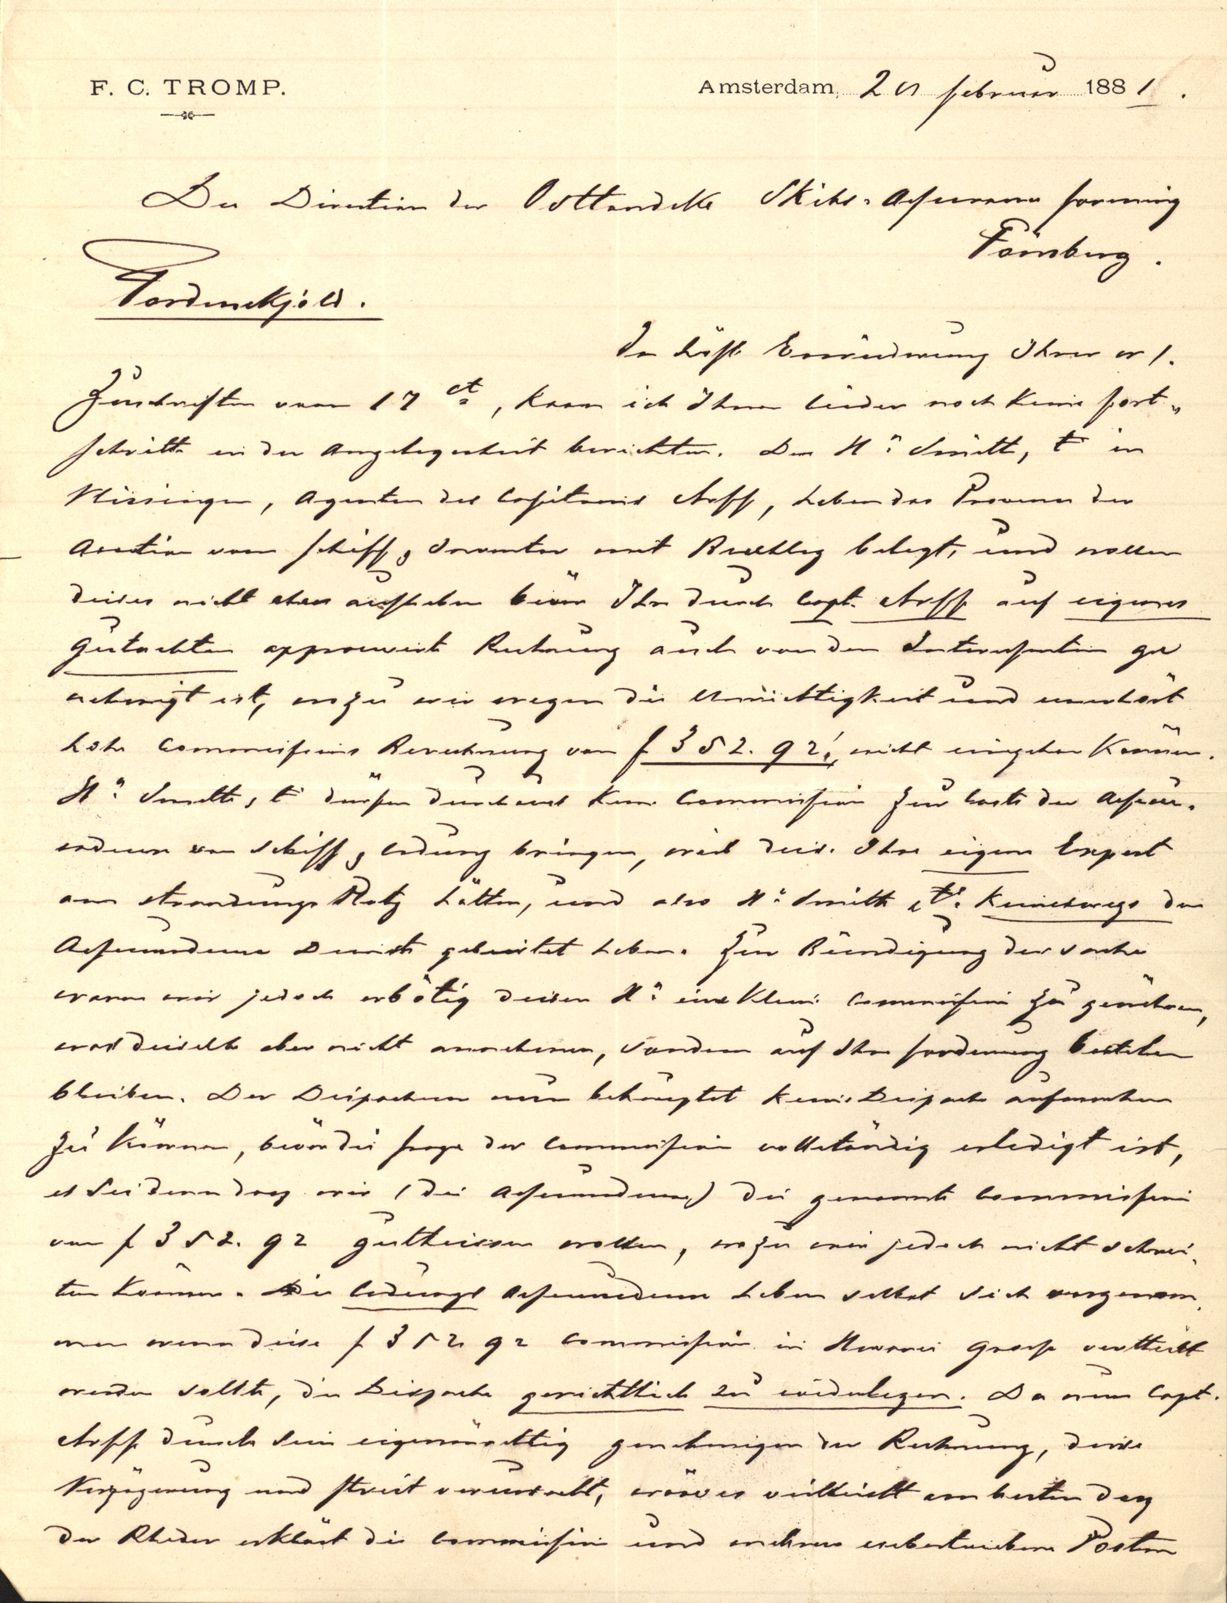 F. C. TROMP.
Amsterdam, 20 februar 1881.
Der Direction der Ostlandske Skibs-Assurance forening
Tönsberg.
Tordenskjold.
In höfl. Erwiederung Ihrer w/.
Zuschriften vom 17 ct, kann ich Ihnen leider noch keine fort-
schritte in der Angelegenheit berichten. Die Hn Smith, in
Vlissingen, Agenten des Capitains Arff, haben das Provenu der
Auction vom Schiff & Inventar mit Beschlag belegt, und wollen
dieses nicht eher aufheben bevor Ihre durch Capt. Arff auf eigenes
Gutachten approuvirte Rechnung auch von den Interessenten ge
nehmigt ist, wozu wir wegen die Unrichtigkeit und unerhört
hohe Commissions Berechnung von f 352.92, nicht eingehen können.
Hn Smith, dürfen durchaus keine Commission zur Last der Assura-
deure von Schiff & Ladung bringen, weil diese Ihre eigene Expert
am strandungs Platz hätten, und also Hn Smith keineswegs den
Assuradeure Dienste geleistet haben. Zur Beendigung der sache
waren wir jedoch erbötig diesen Hn eine kleine Commission zu gewähren,
was dieselbe aber nicht annehmen, sondern auf Ihre forderung bestehen
bleiben. Der Dispacheur nun behauptet keine Dispache aufmachen
zu können, bevor die frage der Commission vollständig erledigt ist,
es sei denn dass wir (die Assuradeure) die genannte Commission
von f 352.92 gutheissen wollen, wozu wir jedoch nicht schrei-
ten können. Die Ladungs Assuradeure haben selbst sich vorgenom
men wenn diese f 352.92 Commission in Havarie Grosse vertheilt
werden sollte, die Dispache gerichtlich zu wiederlegen. Da nun Capt.
Arff durch sein eigenmächtig genehmigen der Rechnung, diese
Verzögerung und Streit verursacht, wäre es vielleicht am besten dass
der Rheder erklärt die Commission und mehrere uebertriebene Posten